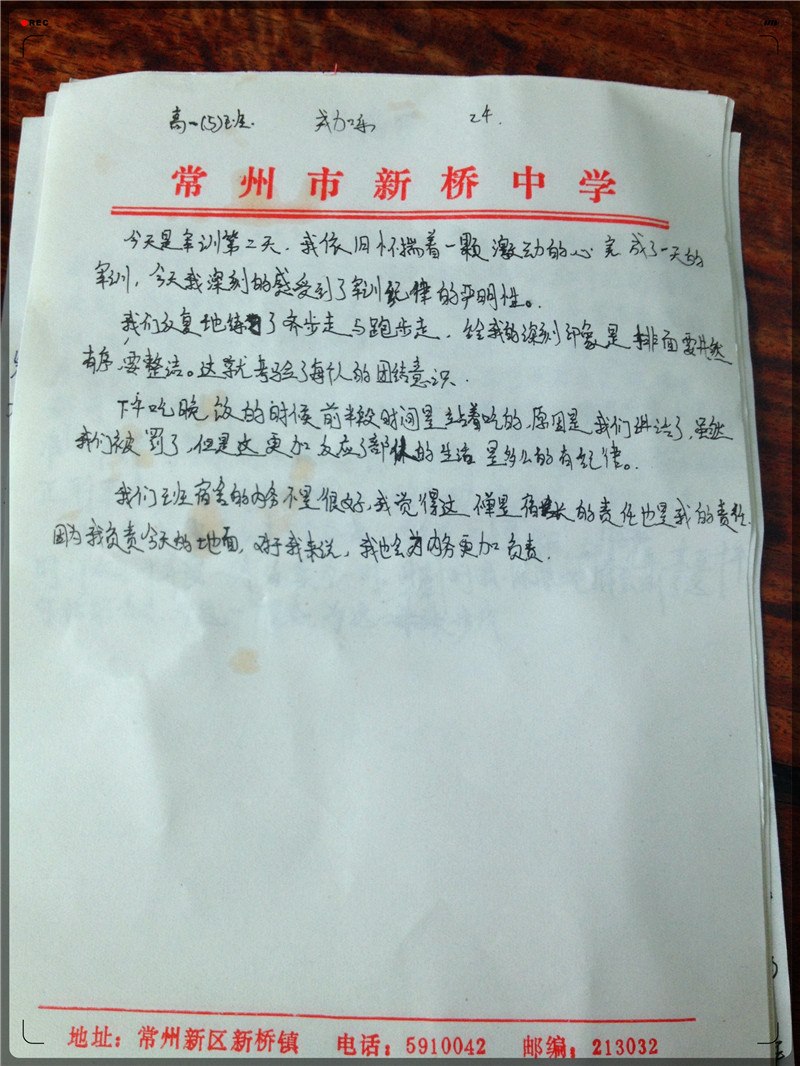 REC
高一(5)班. 24.
常州市新桥中学
今天是军训第二天.我依旧怀揣着一颗激动的心完成了一天的
军训,今天我深刻的感受到了军训纪律的严明性。
我们反复地练习了齐步走与跑步走.给我的深刻印象是排面要井然
有序,要整洁。这就考验了每个人的团结意识.
下午吃晚饭的时候前半段时间是站着吃的,原因是我们讲话了,虽然
我们被罚了,但是这更加反应了部队的生活是多么的有纪律。
我们五班宿舍的内务不是很好,我觉得这 是宿舍长的责任也是我的责任.
因为我负责今天的地面,对于我来说,我也会为内务更加负责.
地址:常州新区新桥镇 电话:5910042 邮编:213032